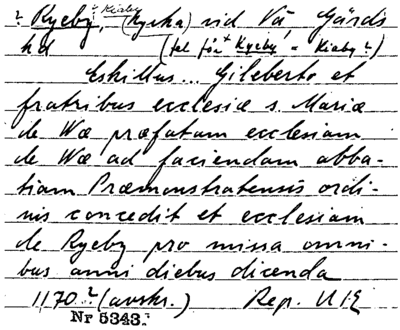 ? Kiaby
? Ryeby, (kyrka) vid Vä, Gärds
hd (fel för + Kyeby = Kiaby?)
Eskillus... Gileberto et
fratribus ecclesiæ s. Mariæ
de Wæ præfatam ecclesiam
de Wæ ad faciendam abba-
tiam Præmonstratensis ordi-
nis concedit et ecclesiam
de Ryeby pro missa omni-
bus anni diebus dicenda
1170? (avskr.) Rep. 
Nr 5343.